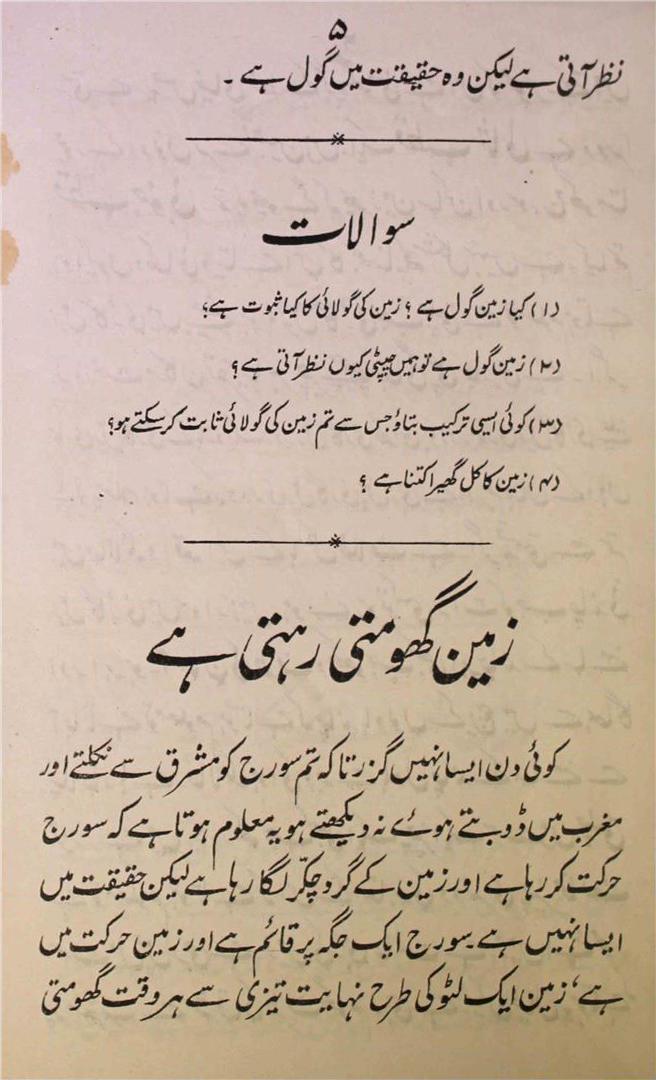 ۵
نظر آتی ہے لیکن وہ حقیقت میں گول ہے ۔
سوالات
(۱) کیا زمین گول ہے ؟ زمین کی گولائی کا کیا ثبوت ہے ؟
(۲) زمین گول ہے تو ہمیں چپٹی کیوں نظر آتی ہے ؟
(۳) کوئی ایسی ترکیب بتاؤ جس سے تم زمین کی گولائی ثابت کر سکتے ہو ؟
(۴) زمین کا کل گھیرا کتنا ہے ؟
زمین گھومتی رہتی ہے
کوئی دن ایسا نہیں گزرتا کہ تم سورج کو مشرق سے نکلتے اور
مغرب میں ڈوبتے ہوئے نہ دیکھتے ہو یہ معلوم ہوتا ہے کہ سورج
حرکت کر رہا ہے اور زمین کے گرد چکّر لگا رہا ہے لیکن حقیقت میں
ایسا نہیں ہے سورج ایک جگہ پر قائم ہے اور زمین حرکت میں
ہے ‘ زمین ایک لٹو کی طرح نہایت تیزی سے ہر وقت گھومتی